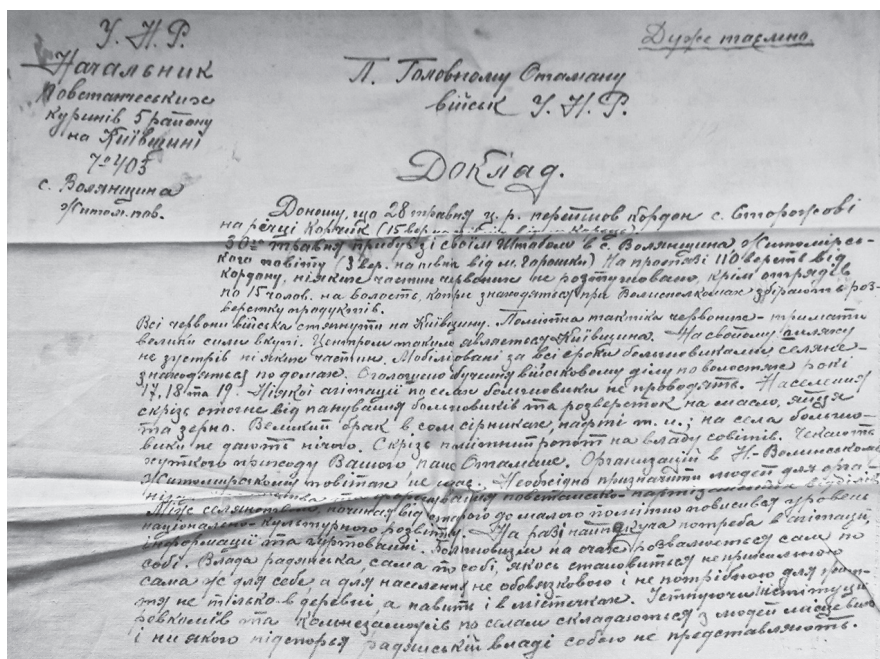 У. Н. Р.
Начальник
Повстанческих
куринів 5 району
на Київщині
№ 403
с. Волянщина
Житом. пов.
Дуже таємно.
П. Головному Отаману
військ У. Н. Р.
Доклад.
Доношу, що 28 травня ц. р. перейшов кордон с. Сторожові
на річці Корчик (15 вер.
30го травня прибув зі своїм Штабом в с. Волянщина Житомірсь-
кого повіту (3 вер. на північ від м. Горошки) На просторі 110 верств від
кордону, ніяких частин червоних не розташовано, крім отрядів
по 15 чолов. на волость, котрі знаходяться при Волисполкомах збірають роз-
верстку продуктів.
Всі червоні війська стягнуті на Київщину. Помітна тактика червоних - тримати
великі сили вкупі. Центром такого являється Київщина. На свойому шляху
не зустрів ніяких частин. Мобілізовані за всі сроки большовиками селяне -
знаходяться по домах. Оголошено бучення військовому ділу по волостях років
17, 18 та 19. Ніякої агітації по селах большовики не проводять. Населення
скрізь стогне від панування большовиків та розверсток на масло, яйця
та зерно. Великий брак в сомсірниках, нафті т. и.; на села большо-
вики не дають нічого. Скрізь помітний ропот на владу совітів. Чекають
хуткого приходу Вашого пане Отамане. Організацій в Н.-Волинському
Житомирському повітах не має. Необхідно призначити людей для орга-
ні та формування повстансько-партизанських відділів.
Між селянством, починая від старого до малого помітно повисився уровень
національно-культурного розвітку. На разі пекуча потреба в агітації,
інформації та гуртованні. Большовизм на очах розвалюється сам по
собі. Влада радянська сама по собі, якось становиться не присильною
сама ж для себе, а для населення не обовязкового і не потрібною для жит-
тя не тілько в деревні а навіть і в місточках. Іствуючи інстітуци
ревкомів та Комнезаможів по селам складаються з людей місцевих
і ни якого підспорья радянській владі собою не представляють.